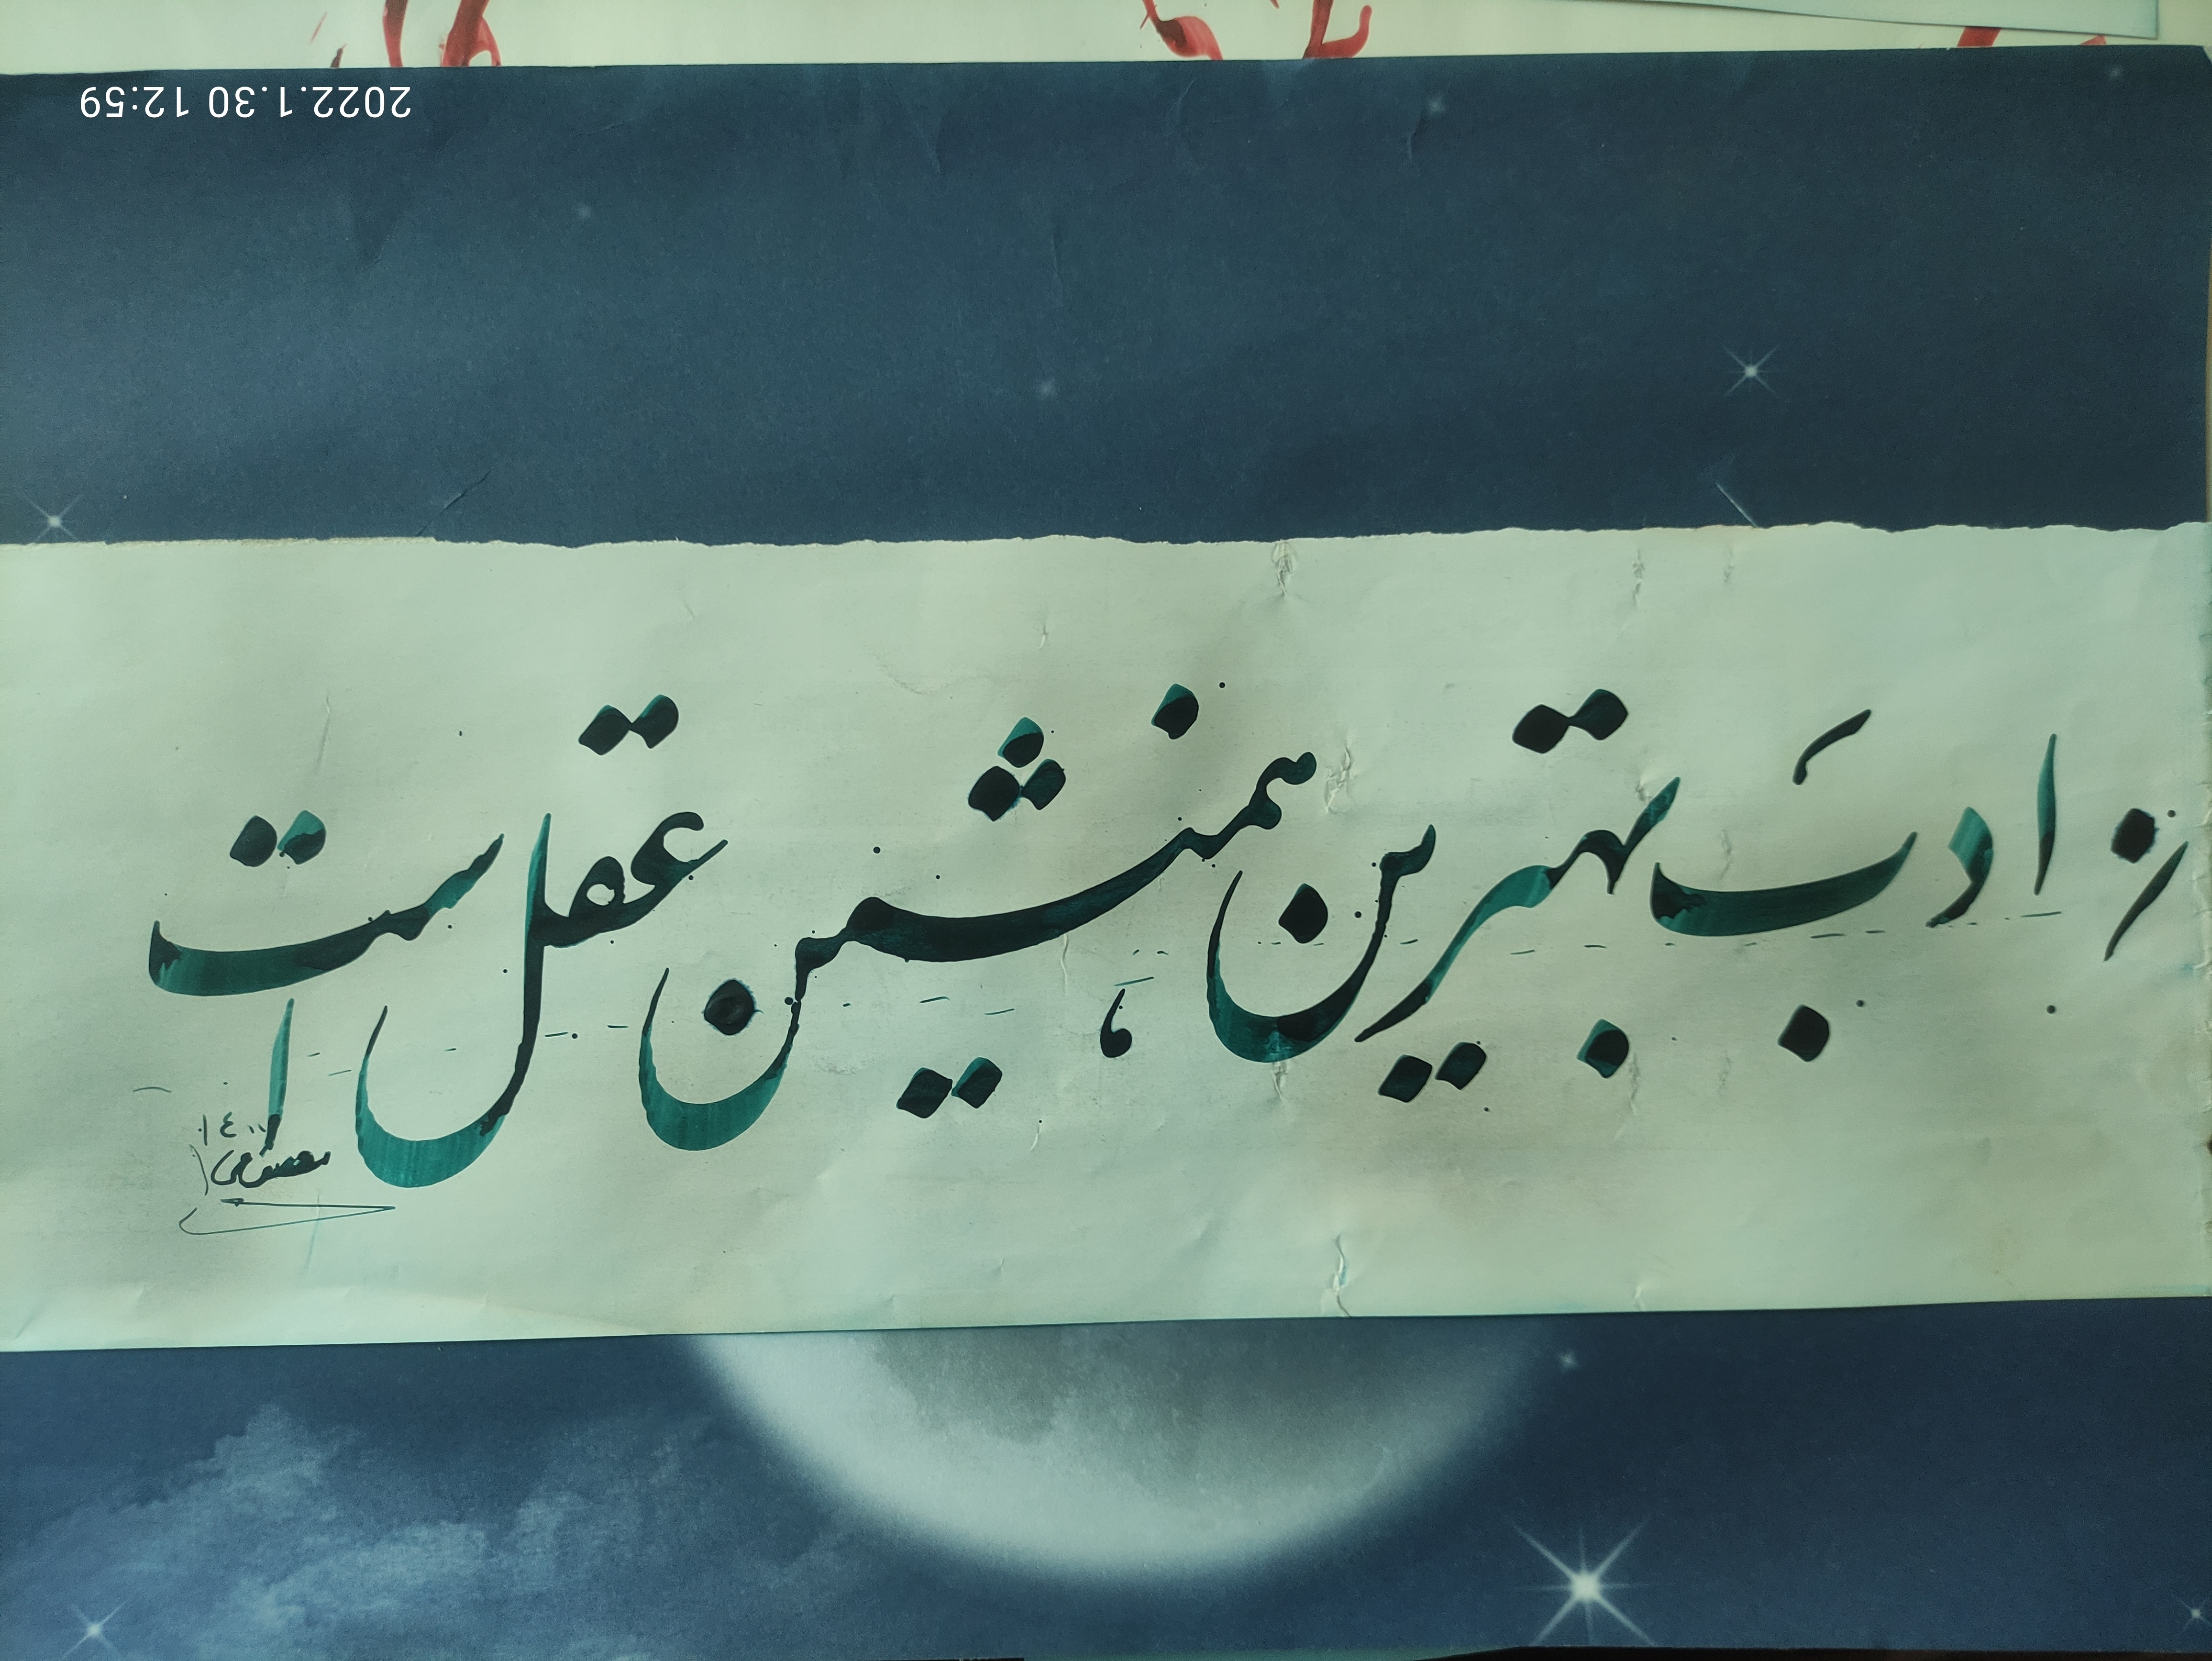 ز ادبَ بهترین همنشین عقل است
2022.1.30 12:59